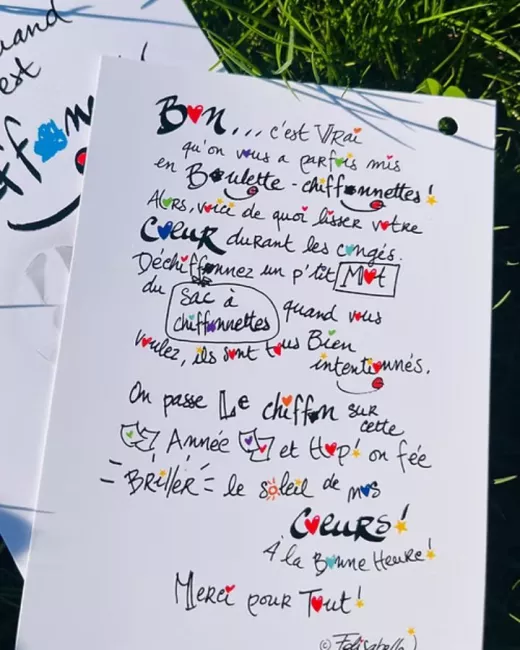 uand
est
Bon... c'est Vrai
qu'on vous a parfois mis
en Boulette - chiffonnettes !
Alors, voici de quoi lisser votre
Cœur durant les congés.
Déchiffonnez un p'tit Mot
du Sac à chiffonnettes quand vous
voulez, ils sont tous Bien
intentionnés.
On passe Le chiffon sur
cette
Année et Hop ! on fée
Briller le soleil de nos
Cœurs !
À la Bonne Heure !
Merci pour Tout !
© Felisabelle